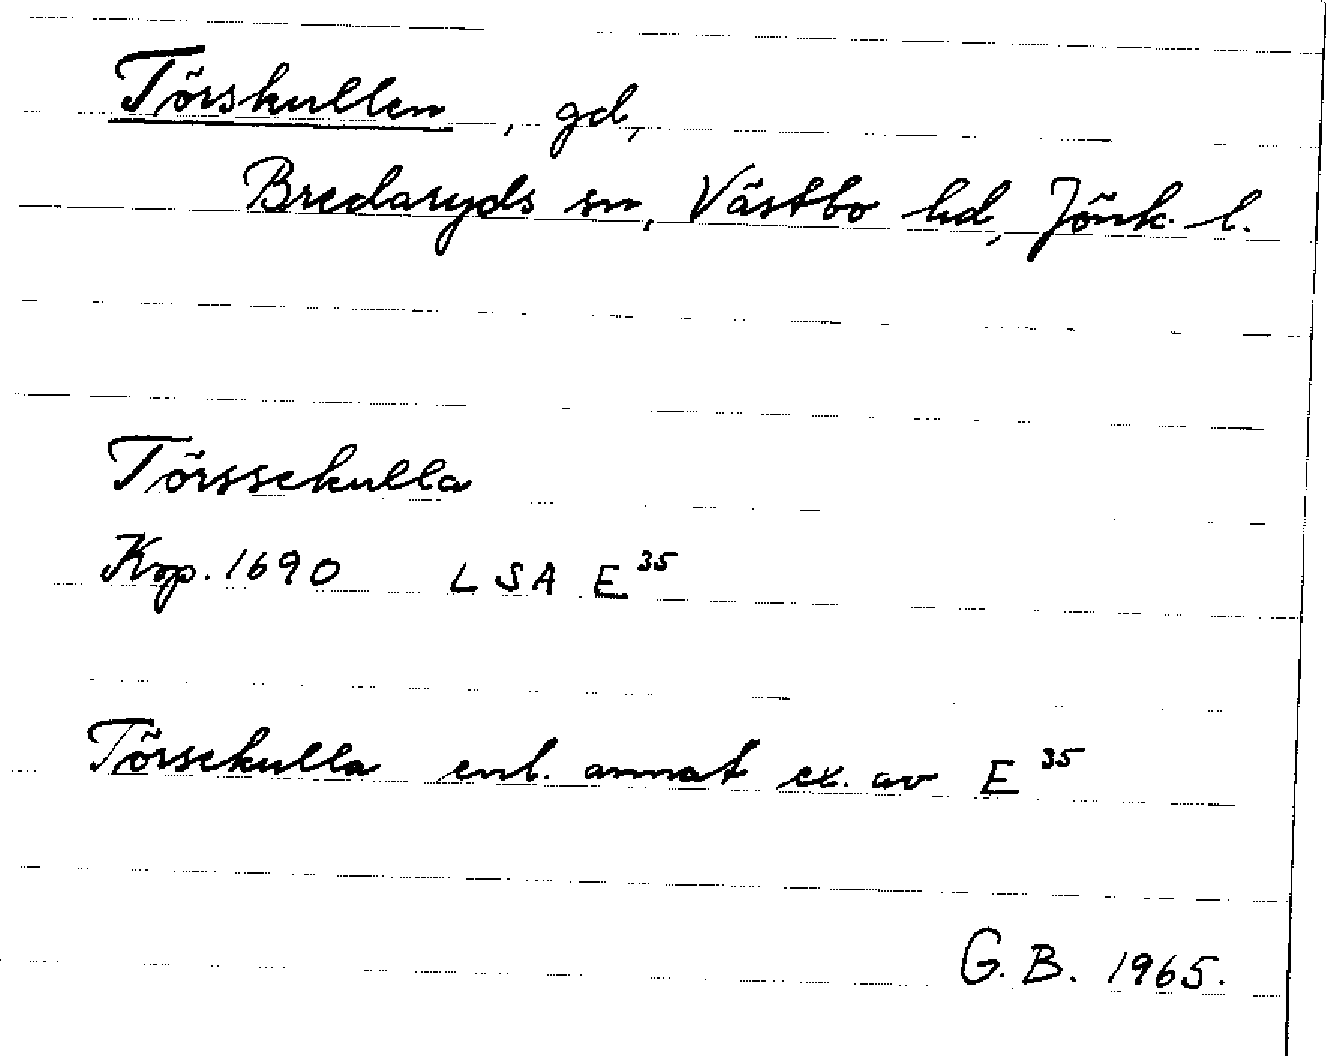 Törskullen, gd,
Bredaryds sn, Västbo hd, Jönk. l.
Törssekulla
Kop. 1690 LSA E 35
Törsekulla enl. annat ex. av E 35
G. B. 1965.